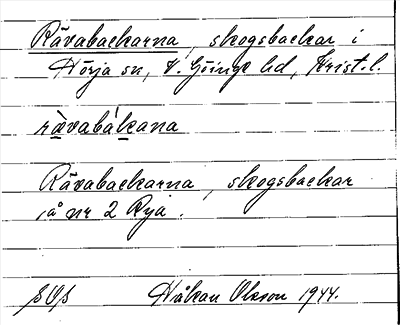 Rävabackarna, skogsbackar i
Hörja sn, V. Göinge hd, Krist. l.
rävabákana
Rävabackarna, skogsbackar
på nr 2 Rya.
Håkan Olsson 1944.